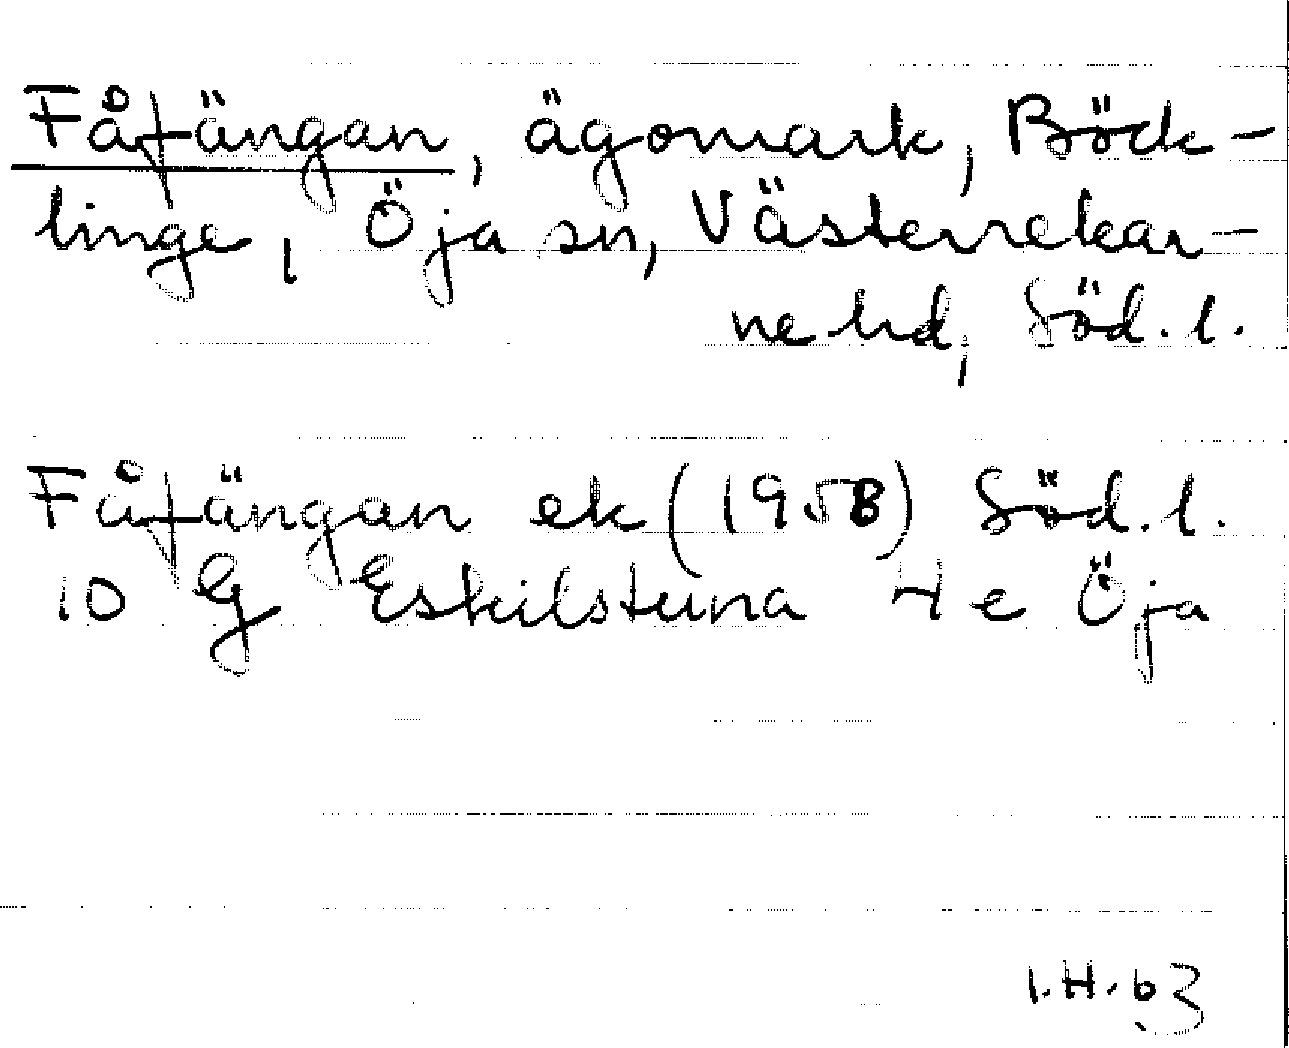 Fåfängan, ägomark, Böck-
linge, Öja sn, Västerrekar-
ne hd, Söd. l.
Fåfängan ek (1958) Söd. l.
10 G Eskilstuna 4 e Öja
I.H. 63